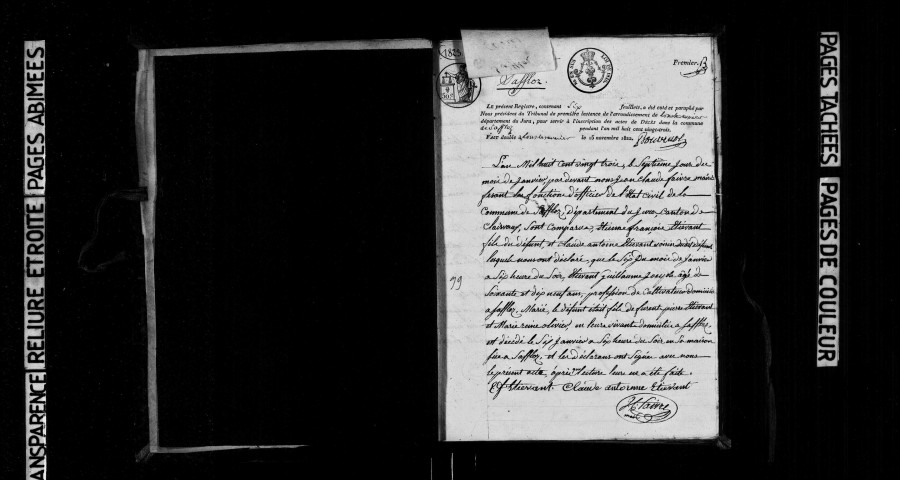 PAGES ABIMEES
RELIURE ÉTROITE
TRANSPARENCE
1823
Saffloz.
Premier
LE présent Registre, contenant Six feuillets, a été coté et paraphé par
Nous président du Tribunal de première instance de l'arrondissement de Lonslesaunier
département du Jura, pour servir à l'inscription des actes de Décès dans la commune
de Saffloz pendant l'an mil huit cent vingt-trois.
FAIT double à Lonslesaunier le 15 novembre 1822.
L'an Mil huit cent vingt trois, le Septième jour du
mois de janvier, par devant nous jean claude faivre maire
fesant les fonction d'officier de l'état civil de la
Commune de Saffloz, département du jura, canton de
Clairvaux, Sont comparus, Etienne françois Etievant
fils du défunt, et claude antoine Etievant voisin dudit défunt
lesquels nous ont déclaré, que le Six du mois de janvier
a Six heure du Soir, Etievant guillaume joseph âgé de
Soixante et dix neuf ans, profession de cultivateur domicilié
a Saffloz, Marié, le défunt était fils de pierre Etievant
et Marie reine olivier, en leurs vivant domicilié a Saffloz,
est décédé le Six janvier a Six heure du Soir en Sa maison
Sise a Saffloz, et les déclarans ont Signé avec nous
le présent acte, après lecture leurs en a été faite.
Ef Etievant Claude antoinne Etievent
faivre
maire
99
PAGES TACHÉES
PAGES DE COULEUR